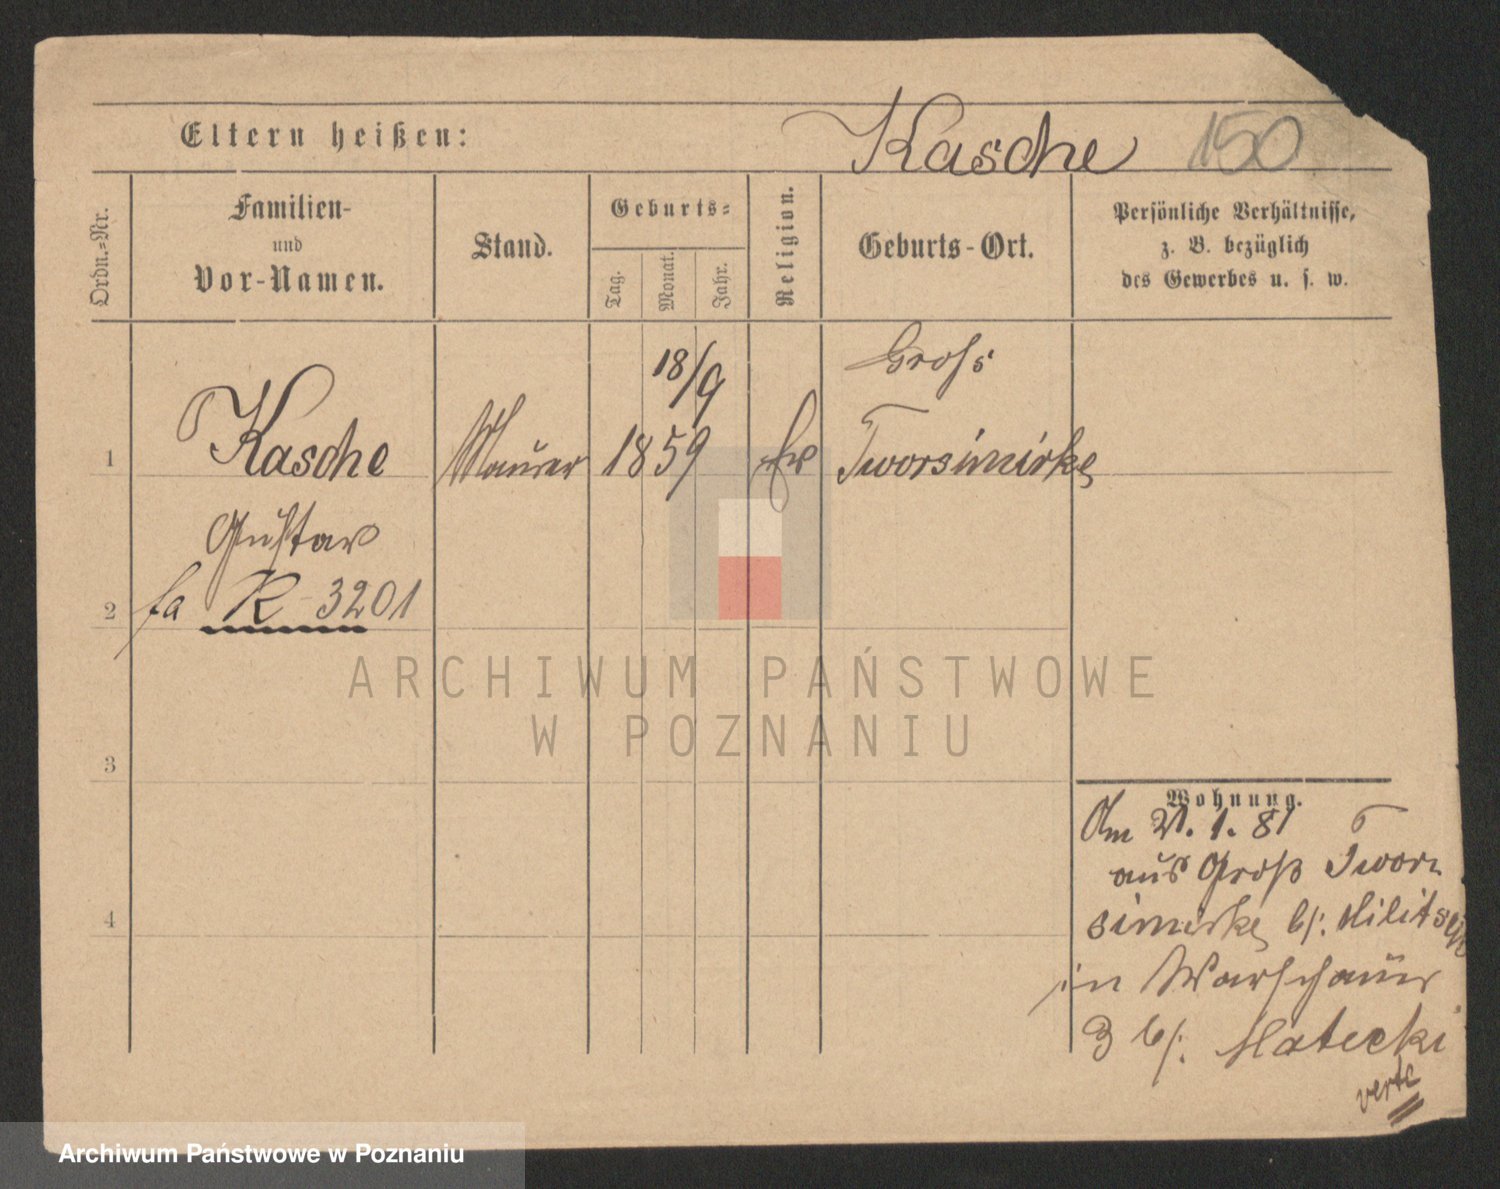 Eltern heißen:
Kasche 150
Ordn.=Nr.
Familien-
und
Vor-Namen.
Stand.
Geburts=
Tag.
Monat.
Jahr.
Religion.
Geburts-Ort.
Persönliche Verhältnisse,
z. B. bezüglich
des Gewerbes u. s. w.
1
Kasche
Gustav
Maurer
18/9
1859
Gross
Tworsimirke
2
fa R-3201
3
4
Wohnung.
Am 21. 1. 81
aus Groß Twor-
simirke b/: Militsch
in Warschauer
3 b/: Matecki
verte
ARCHIWUM PAŃSTWOWE
W POZNANIU
Archiwum Państwowe w Poznaniu